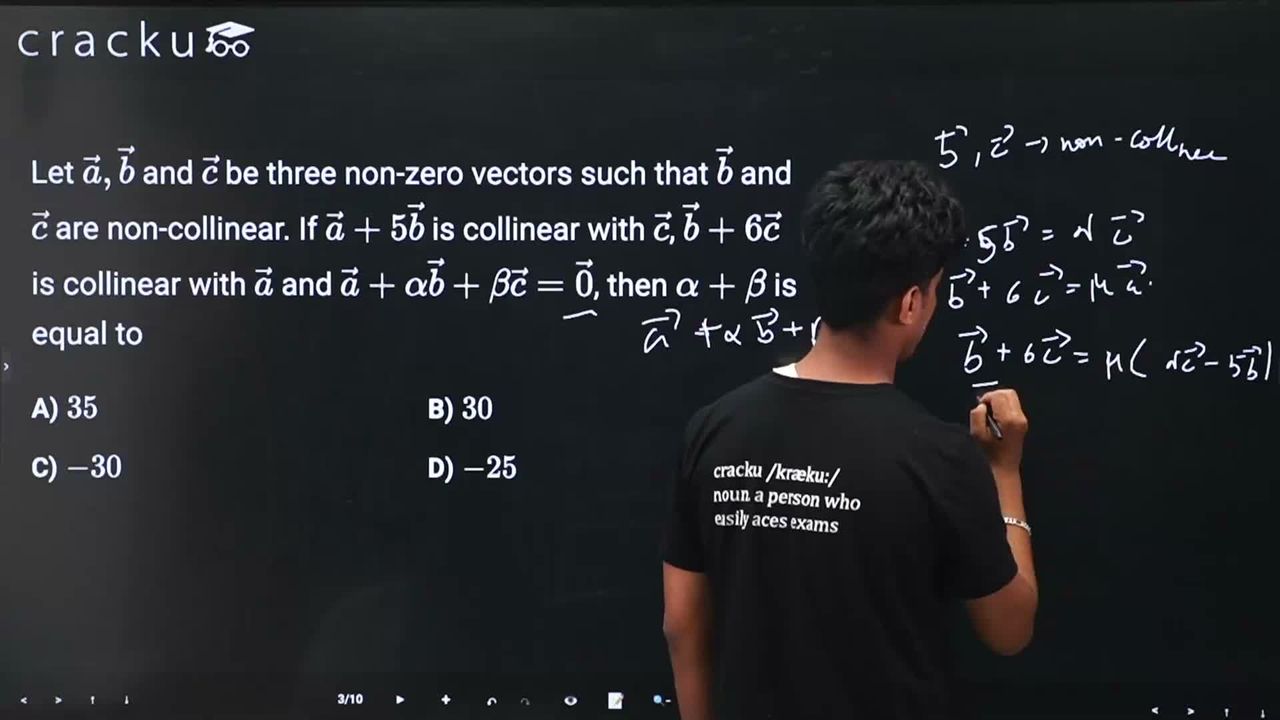 cracku
Let $\vec{a}, \vec{b}$ and $\vec{c}$ be three non-zero vectors such that $\vec{b}$ and
$\vec{c}$ are non-collinear. If $\vec{a} + 5\vec{b}$ is collinear with $\vec{c}, \vec{b} + 6\vec{c}$
is collinear with $\vec{a}$ and $\vec{a} + \alpha\vec{b} + \beta\vec{c} = \vec{0}$, then $\alpha + \beta$ is
equal to
A) 35
B) 30
C) −30
D) −25
$\vec{b}, \vec{c}$ → non-collinear
$5\vec{b} = \lambda\vec{c}$
$\vec{b} + 6\vec{c} = \mu\vec{a}$.
$\vec{a} + \alpha\vec{b} +$
$\vec{b} + 6\vec{c} = \mu(\lambda\vec{c} - 5\vec{b})$
cracku /kræku:/
noun. a person who
easily aces exams
3/10